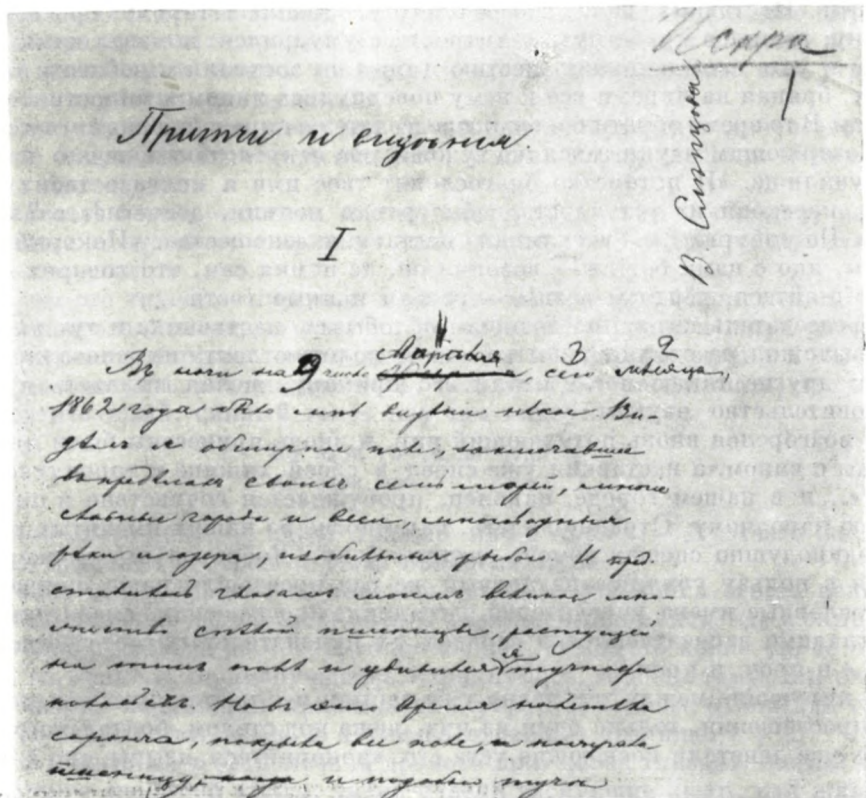 Искра
В. Слепцова
Притчи и видѣнія.
I
Въ ночи на 9 число Мартовка сего мѣсяца,
1862 года бысть мнѣ видѣніе нѣкое. Ви-
дѣлъ я обширное поле, заключавшее
въ предѣлахъ своихъ семь морей, много
славные города и веси, многоводныя
рѣки и озера, изобильныя рыбою. И пред
ставилось глазамъ моимъ великое мно
жество спѣлой пшеницы, растущей
на томъ полѣ и удивился я тучности
колосьевъ. Но въ это время налетѣла
саранча, покрыла все поле, и
пшеницу, и подобно тучи